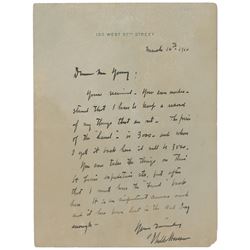 130 WEST 57TH STREET
March 16th, 1910
Dear Mr Young:
Yours received. You can under-
stand that I have to keep a record
of my things that are out. The price
of the "Hound" is 3000.- and when
I get it back here it will be 3000.
You can take the things on this
St Louis exposition etc, but after
that I must have the Hound back
here. It is an important canvas and
it has been lost in the
enough.
Yours Sincerely